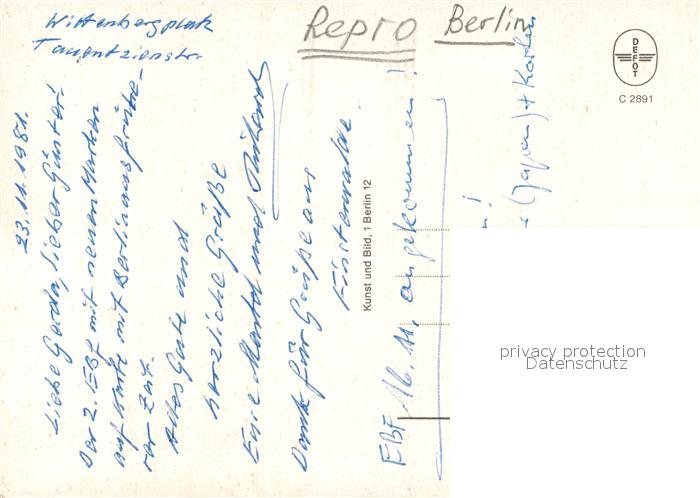 Wittenbergplatz
Tauentzienstr.
Repro Berlin
DEFOT
C 2891
23.11.1981.
Liebe Gerda, lieber Günter!
Der 2. EBf mit neuen Marken
auf Karte mit Berlinansfrühe-
rer Zeit.
Alles Gute und
herzliche Grüße
Eure Martel und
Dank für Grüße aus
Fürstenwalde.
Kunst und Bild, 1 Berlin 12
EBf 16.11. angekommen!
(Japan) + Karten
privacy protection
Datenschutz